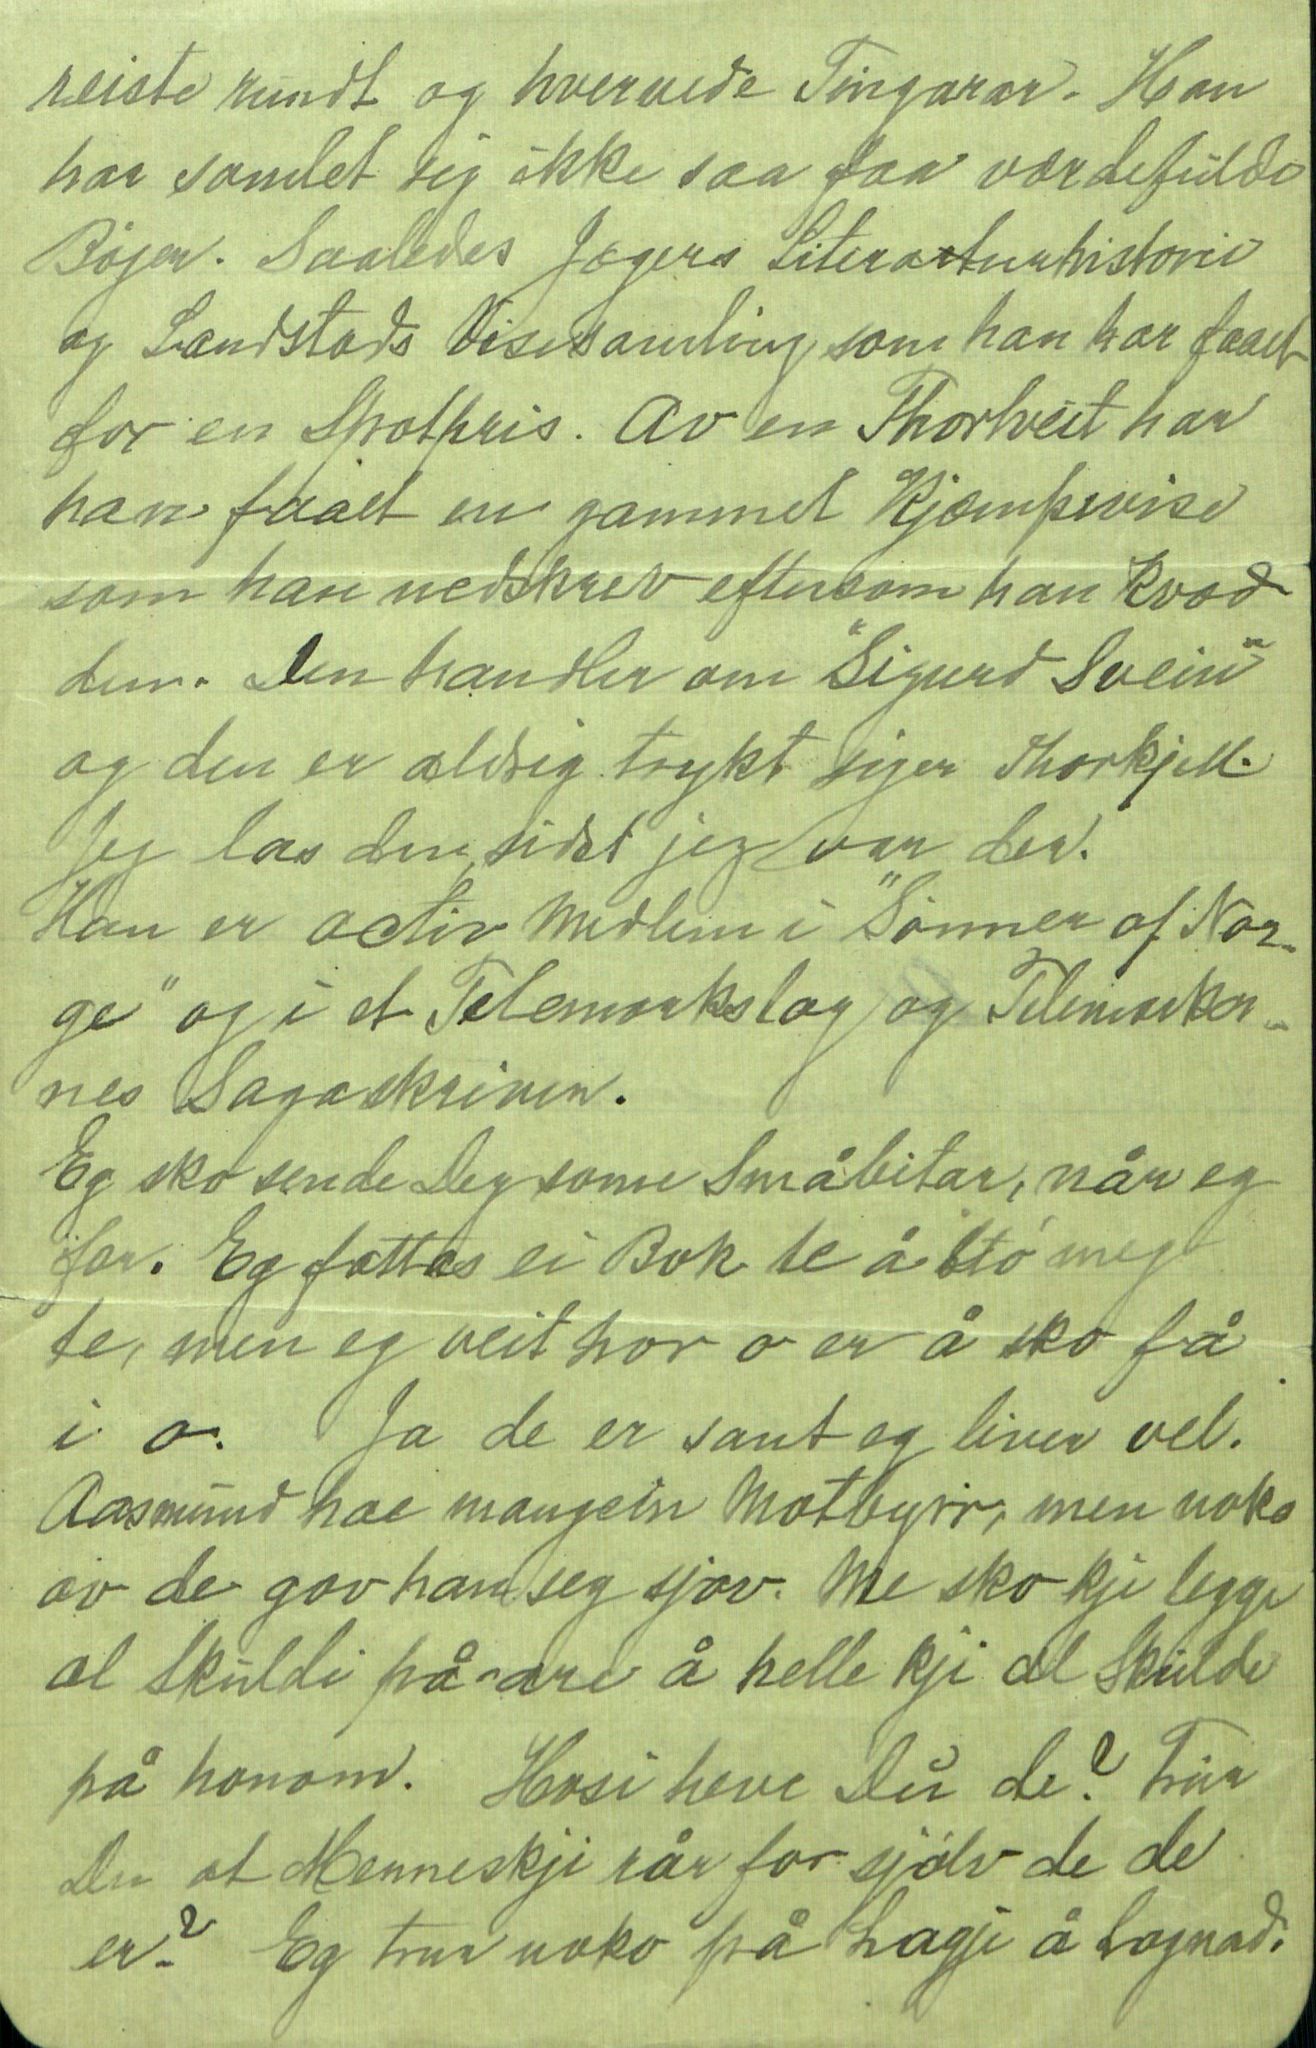 reiste rundt og hvervede Tingarar. Han
har samlet sig ikke saa faa værdefulde
Bøger. Saaledes Jægers Literaturhistorie
og Landstads Visesamling, som han har faaet
for en Spotpris. Av en Thortveit har
han faaet en gammel Kjæmpevise
som han nedskrev eftersom han kvad
den. Den handler om "Sigurd Svein"
og den er aldrig trykt siger Thorkjell.
Jeg læs den, sidst jeg var der.
Han er activ Medlem i "Sønner af Nor-
ge" og i et Telemarkslag og Telemarker-
nes Sagaskriver.
Eg sko sende Deg some Småbitar, når eg
får. Eg fattas ei Bok te å stø meg
te, men eg veit hor o er å sko få
i o. Ja de er sant eg liver vel.
Aasmund hae mangein Motbyrr, men noko
av de gav han seg sjøv. Me sko kji legge
al Skuldi på are å helle kji al Skulde
på honom. Hosi heve Du de? Trur
Du at Menneskji rår for sjølv de de
er? Eg trur noko på Lagji å Lagnad.